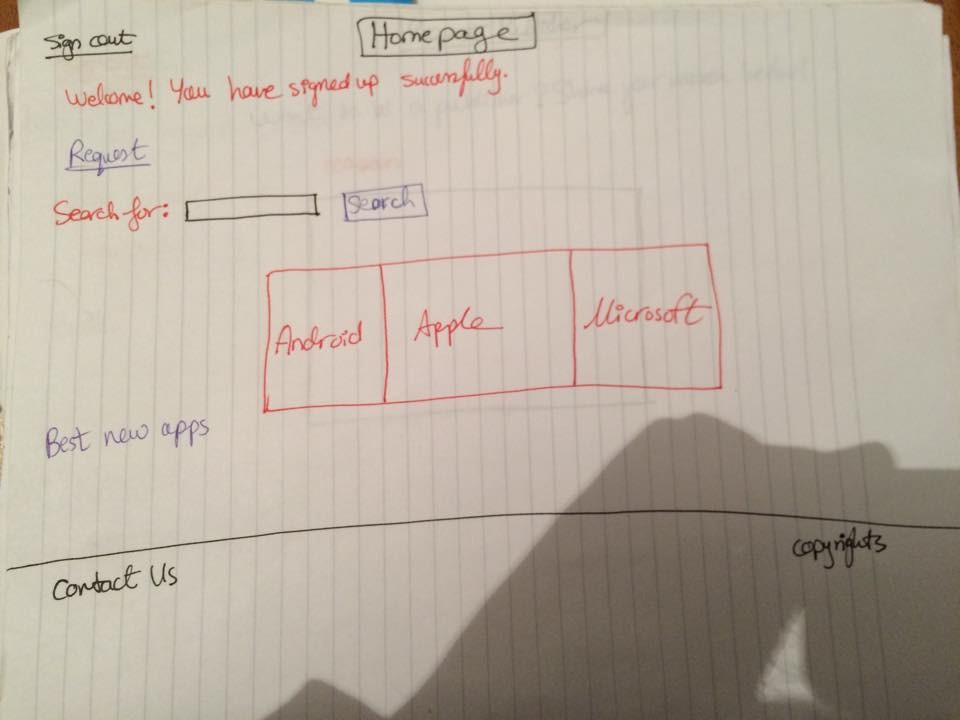 Sign out
Homepage
Welcome! You have signed up sucessfully.
Request
Search for:
Search
Android
Apple
Microsoft
Best new apps
Contact Us
copyrights